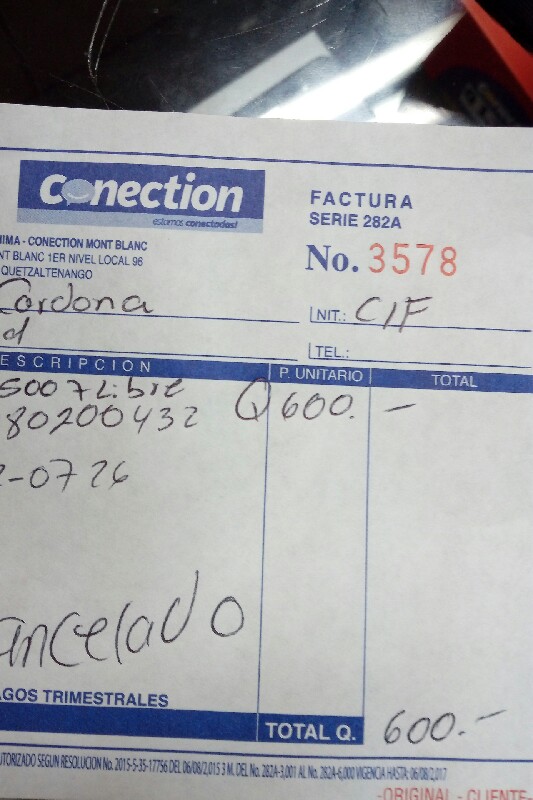 Conection
estamos conectados!
FACTURA
SERIE 282A
No. 3578
HIMA - CONECTION MONT BLANC
NT BLANC 1ER NIVEL LOCAL 96
QUETZALTENANGO
Cardona
NIT.: C/F
d
TEL.:
ESCRIPCION P. UNITARIO TOTAL
5007 Libre
80200432 Q600.—
2-0726
ancelado
AGOS TRIMESTRALES
TOTAL Q. 600.—
UTORIZADO SEGUN RESOLUCION No. 2015-5-35-17756 DEL 06/08/2,015 3 M. DEL No. 282A-3,001 AL No. 282A-6,000 VIGENCIA HASTA: 06/08/2,017
-ORIGINAL - CLIENTE-